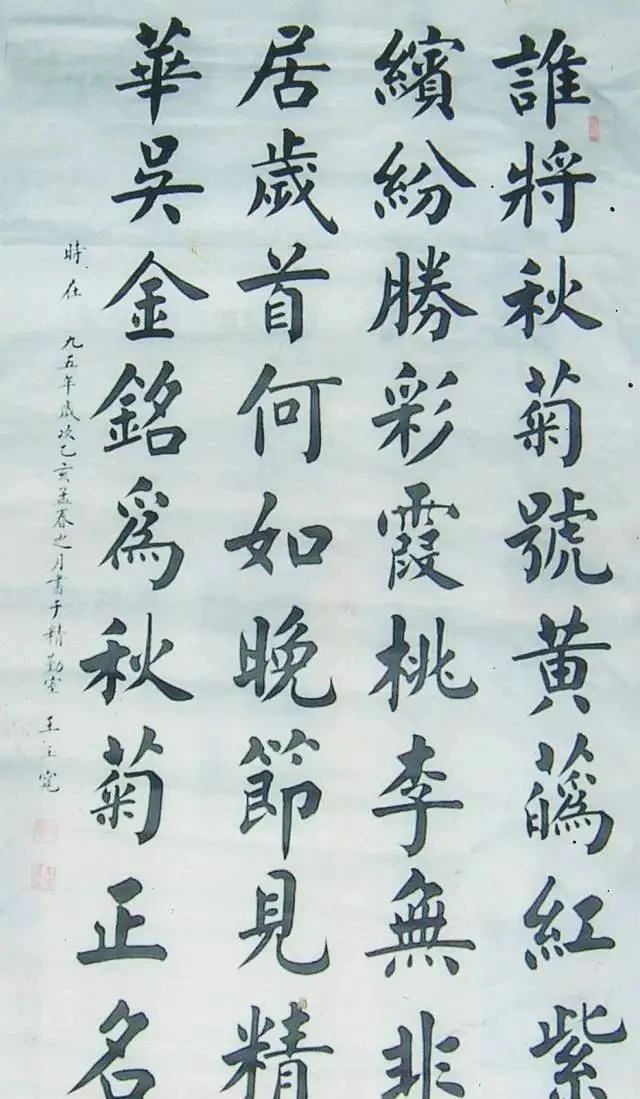 誰將秋菊號黃蘤紅紫
繽紛勝彩霞桃李無非
居歲首何如晚節見精
華吳金銘爲秋菊正名
時在 九五年歲次乙亥孟春之月書于精勤堂 王玉寬